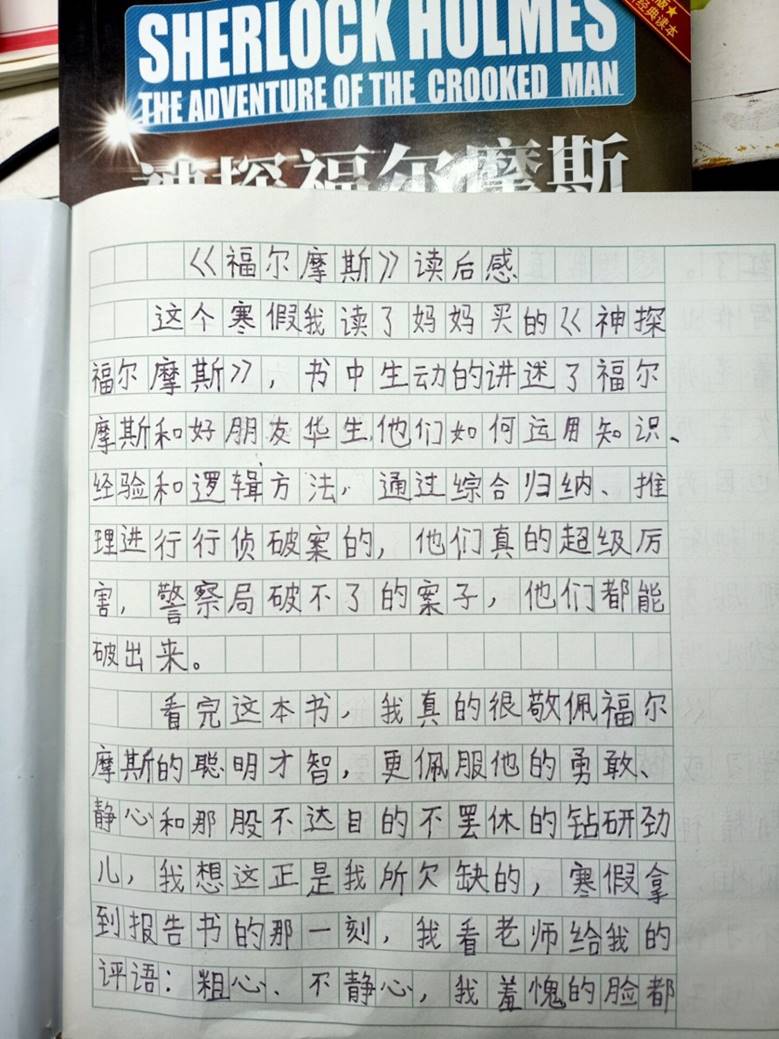 SHERLOCK HOLMES
THE ADVENTURE OF THE CROOKED MAN
神探福尔摩斯
经典读本
《福尔摩斯》读后感
这个寒假我读了妈妈买的《神探
福尔摩斯》，书中生动的讲述了福尔
摩斯和好朋友华生,他们如何运用知识、
经验和逻辑方法，通过综合归纳、推
理进行行侦破案的，他们真的超级厉
害，警察局破不了的案子，他们都能
破出来。
看完这本书，我真的很敬佩福尔
摩斯的聪明才智，更佩服他的勇敢、
静心和那股不达目的不罢休的钻研劲
儿，我想这正是我所欠缺的，寒假拿
到报告书的那一刻，我看老师给我的
评语：粗心、不静心，我羞愧的脸都